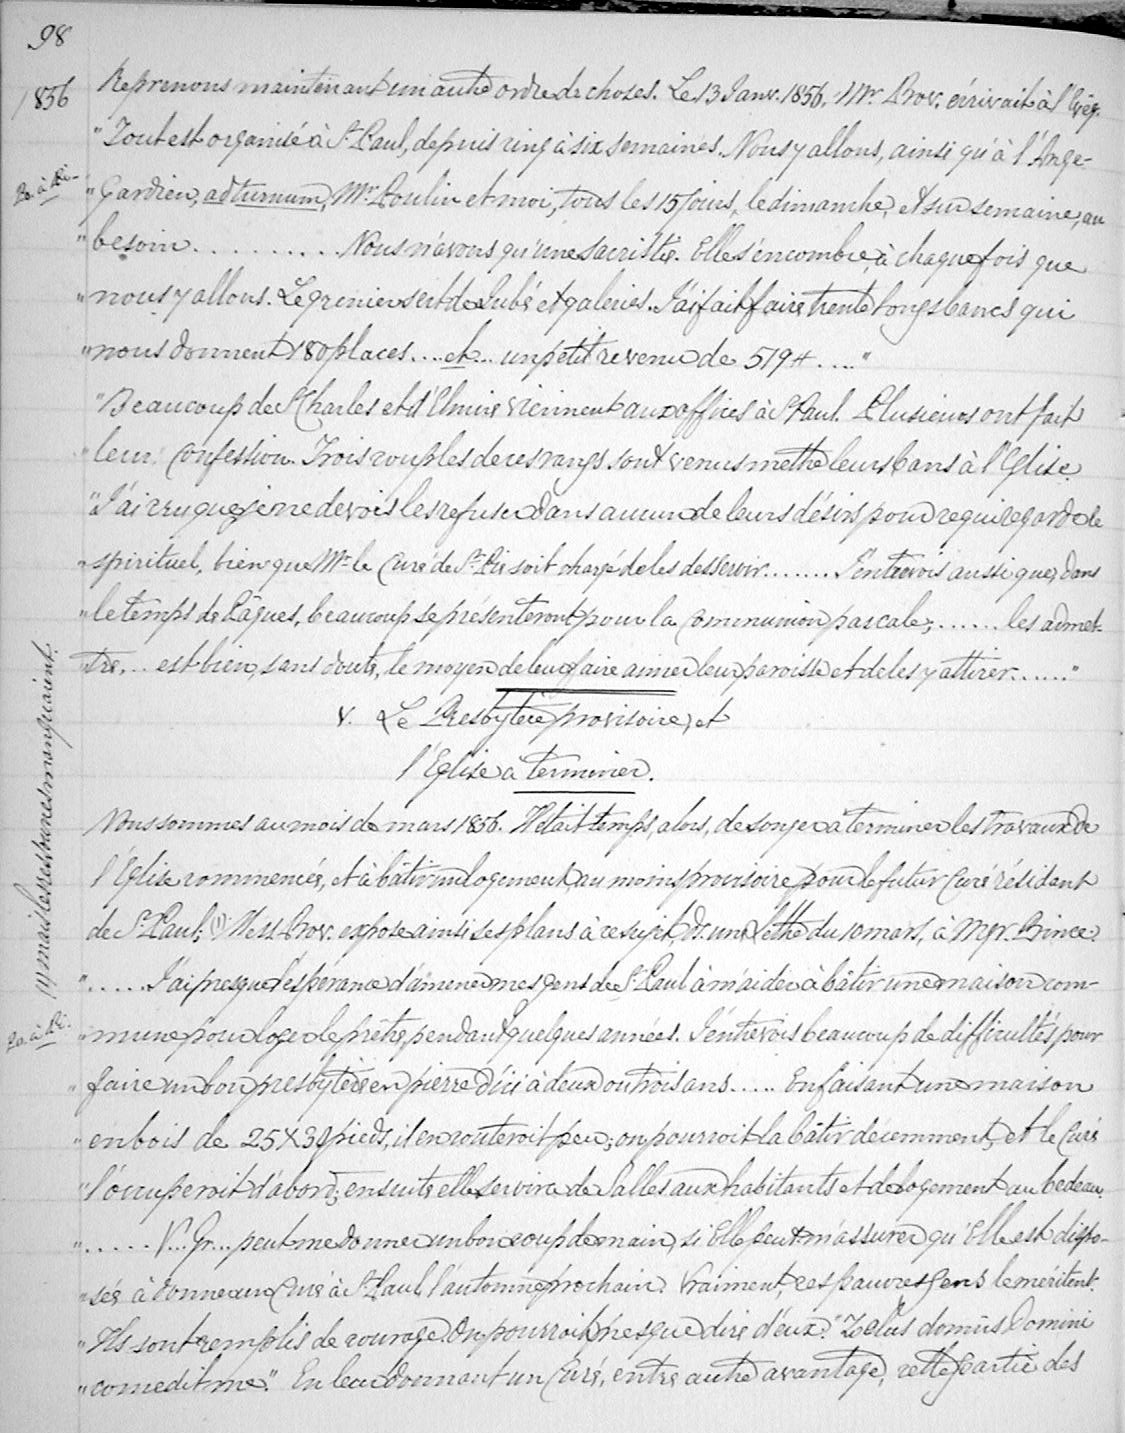 98
1856
Reprenons maintenant un autre ordre de choses. Le 13 Janv. 1856, Mr. Prov. écrivait à l'Evêq.
"Tout est organisé à St Paul, depuis cinq à six semaines. Nous y allons, ainsi qu'à l'Ange-
"Gardien, ad turnum, Mr. Poulin et moi, tous les 15 jours, le dimanche, et sur semaine, au
"besoin .......... Nous n'avons qu'une sacristie. Elle s'encombre, à chaque fois que
"nous y allons. Le grenier sert de Jubé et galeries. J'ai fait faire trente longs bancs qui
"nous donnent 180 places .... et ... un petit revenu de 519 # ...."
"Beaucoup de St Charles et d'Elmire viennent aux offices à St Paul. Plusieurs ont fait
"leur confession. Trois couples de ces rangs sont venus mettre leurs bans à l'Eglise.
"J'ai cru que je ne devois les refuser dans aucun de leurs désirs pour ce qui regarde le
"spirituel, bien que Mr le Curé de St. Pie soit chargé de les desservir....... J'entrevois aussi que, dans
"le temps de Pâques, beaucoup se présenteront pour la communion pascale;...... les admet-
"tre, ... est bien, sans doute, le moyen de leur faire aimer leur paroisse et de les y attirer......"
V. Le Presbytère provisoire, et
l'Eglise à terminer.
Nous sommes au mois de mars 1856. Il était temps, alors, de songer à terminer les travaux de
l'Eglise commencés, et à bâtir un logement, au moins provisoire, pour le futur Curé résident
de St. Paul; (1) Mess. Prov. expose ainsi ses plans à ce sujet, ds. une lettre du 10 mars, à Mgr. Prince.
"..... J'ai presque l'espérance d'amener mes gens de St. Paul à m'aider à bâtir une maison com-
"mune pour loger le prêtre pendant quelques années. J'entrevois beaucoup de difficultés pour
"faire un bon presbytère en pierre d'ici à deux ou trois ans ..... En faisant une maison
"en bois de 25 X 30 pieds, il en couteroit peu; on pourroit la bâtir décemment, et le Curé
"l'occuperoit d'abord; ensuite elle servira de Salle aux habitants et de logement au bedeau.
"..... V... Gr... peut me donner un bon coup de main, si Elle peut m'assurer qu'Elle est dispo-
"sée à donner un Curé à St. Paul, l'automne prochain. Vraiment, ces pauvres gens le méritent.
"Ils sont remplis de courage. On pourroit presque dire d'eux: "Zelus domûs Domini
"comedit me." En leur donnant un Curé, entre autre avantage, cette partie des
(1) mais les ressources manquaient.